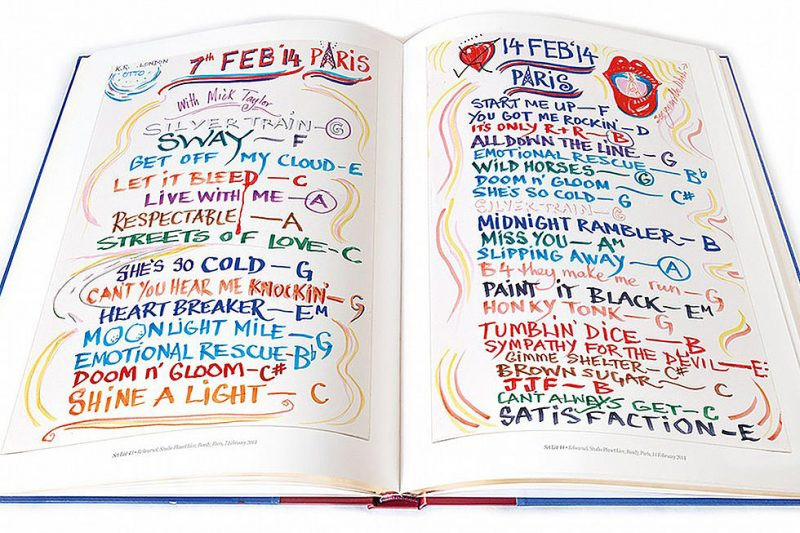 K.R. LONDON
OTTO
7th FEB '14 PARIS
With Mick Taylor
SILVER TRAIN - G
SWAY - F
GET OFF MY CLOUD - E
LET IT BLEED - C
LIVE WITH ME - A
RESPECTABLE - A
STREETS OF LOVE - C
SHE'S SO COLD - G
CAN'T YOU HEAR ME KNOCKIN' - G
HEART BREAKER - EM
MOONLIGHT MILE - G
EMOTIONAL RESCUE - Bb
DOOM N' GLOOM - C#
SHINE A LIGHT - C
Set List 43 • Rehearsal, Studio Planet Live, Bondy, Paris, 7 February 2014
14 FEB '14
PARIS
START ME UP - F
YOU GOT ME ROCKIN - D
ITS ONLY R+R - B
ALL DOWN THE LINE - G
EMOTIONAL RESCUE - Bb
WILD HORSES - G
DOOM N' GLOOM - C#
SHE'S SO COLD - G
SILVER TRAIN - G
MIDNIGHT RAMBLER - B
MISS YOU - AM
SLIPPING AWAY - A
B4 they make me run - G
PAINT IT BLACK - EM
HONKY TONK - G
TUMBLIN' DICE - B
SYMPATHY FOR THE DEVIL - E
GIMME SHELTER - C#
BROWN SUGAR - C
JJF - B
CANT ALWAYS GET - C
SATISFACTION - E
Set List 44 • Rehearsal, Studio Planet Live, Bondy, Paris, 14 February 2014